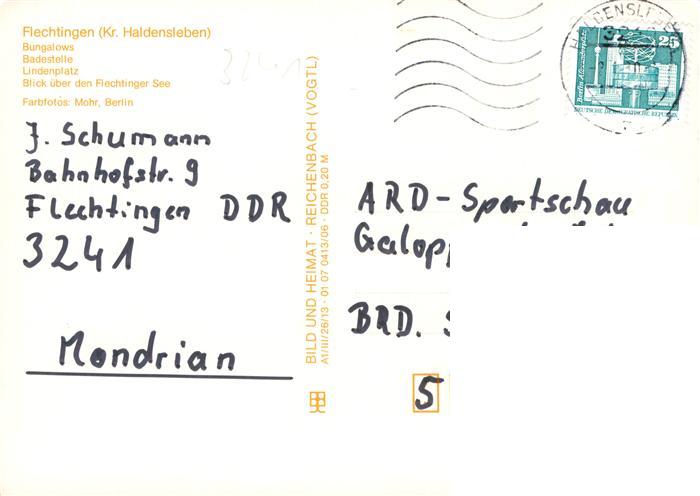 Flechtingen (Kr. Haldensleben)
Bungalows
Badestelle
Lindenplatz
Blick über den Flechtinger See
Farbfotos: Mohr, Berlin
3241
J. Schumann
Bahnhofstr. 9
Flechtingen DDR
3241
Mondrian
BILD UND HEIMAT · REICHENBACH (VOGTL)
A1/III/26/13 · 01 07 0413/06 · DDR 0,20 M
HALDENSLEBEN
25
Berlin, Alexanderplatz
DEUTSCHE DEMOKRATISCHE REPUBLIK
ARD-Sportschau
Galopp
BRD.
5